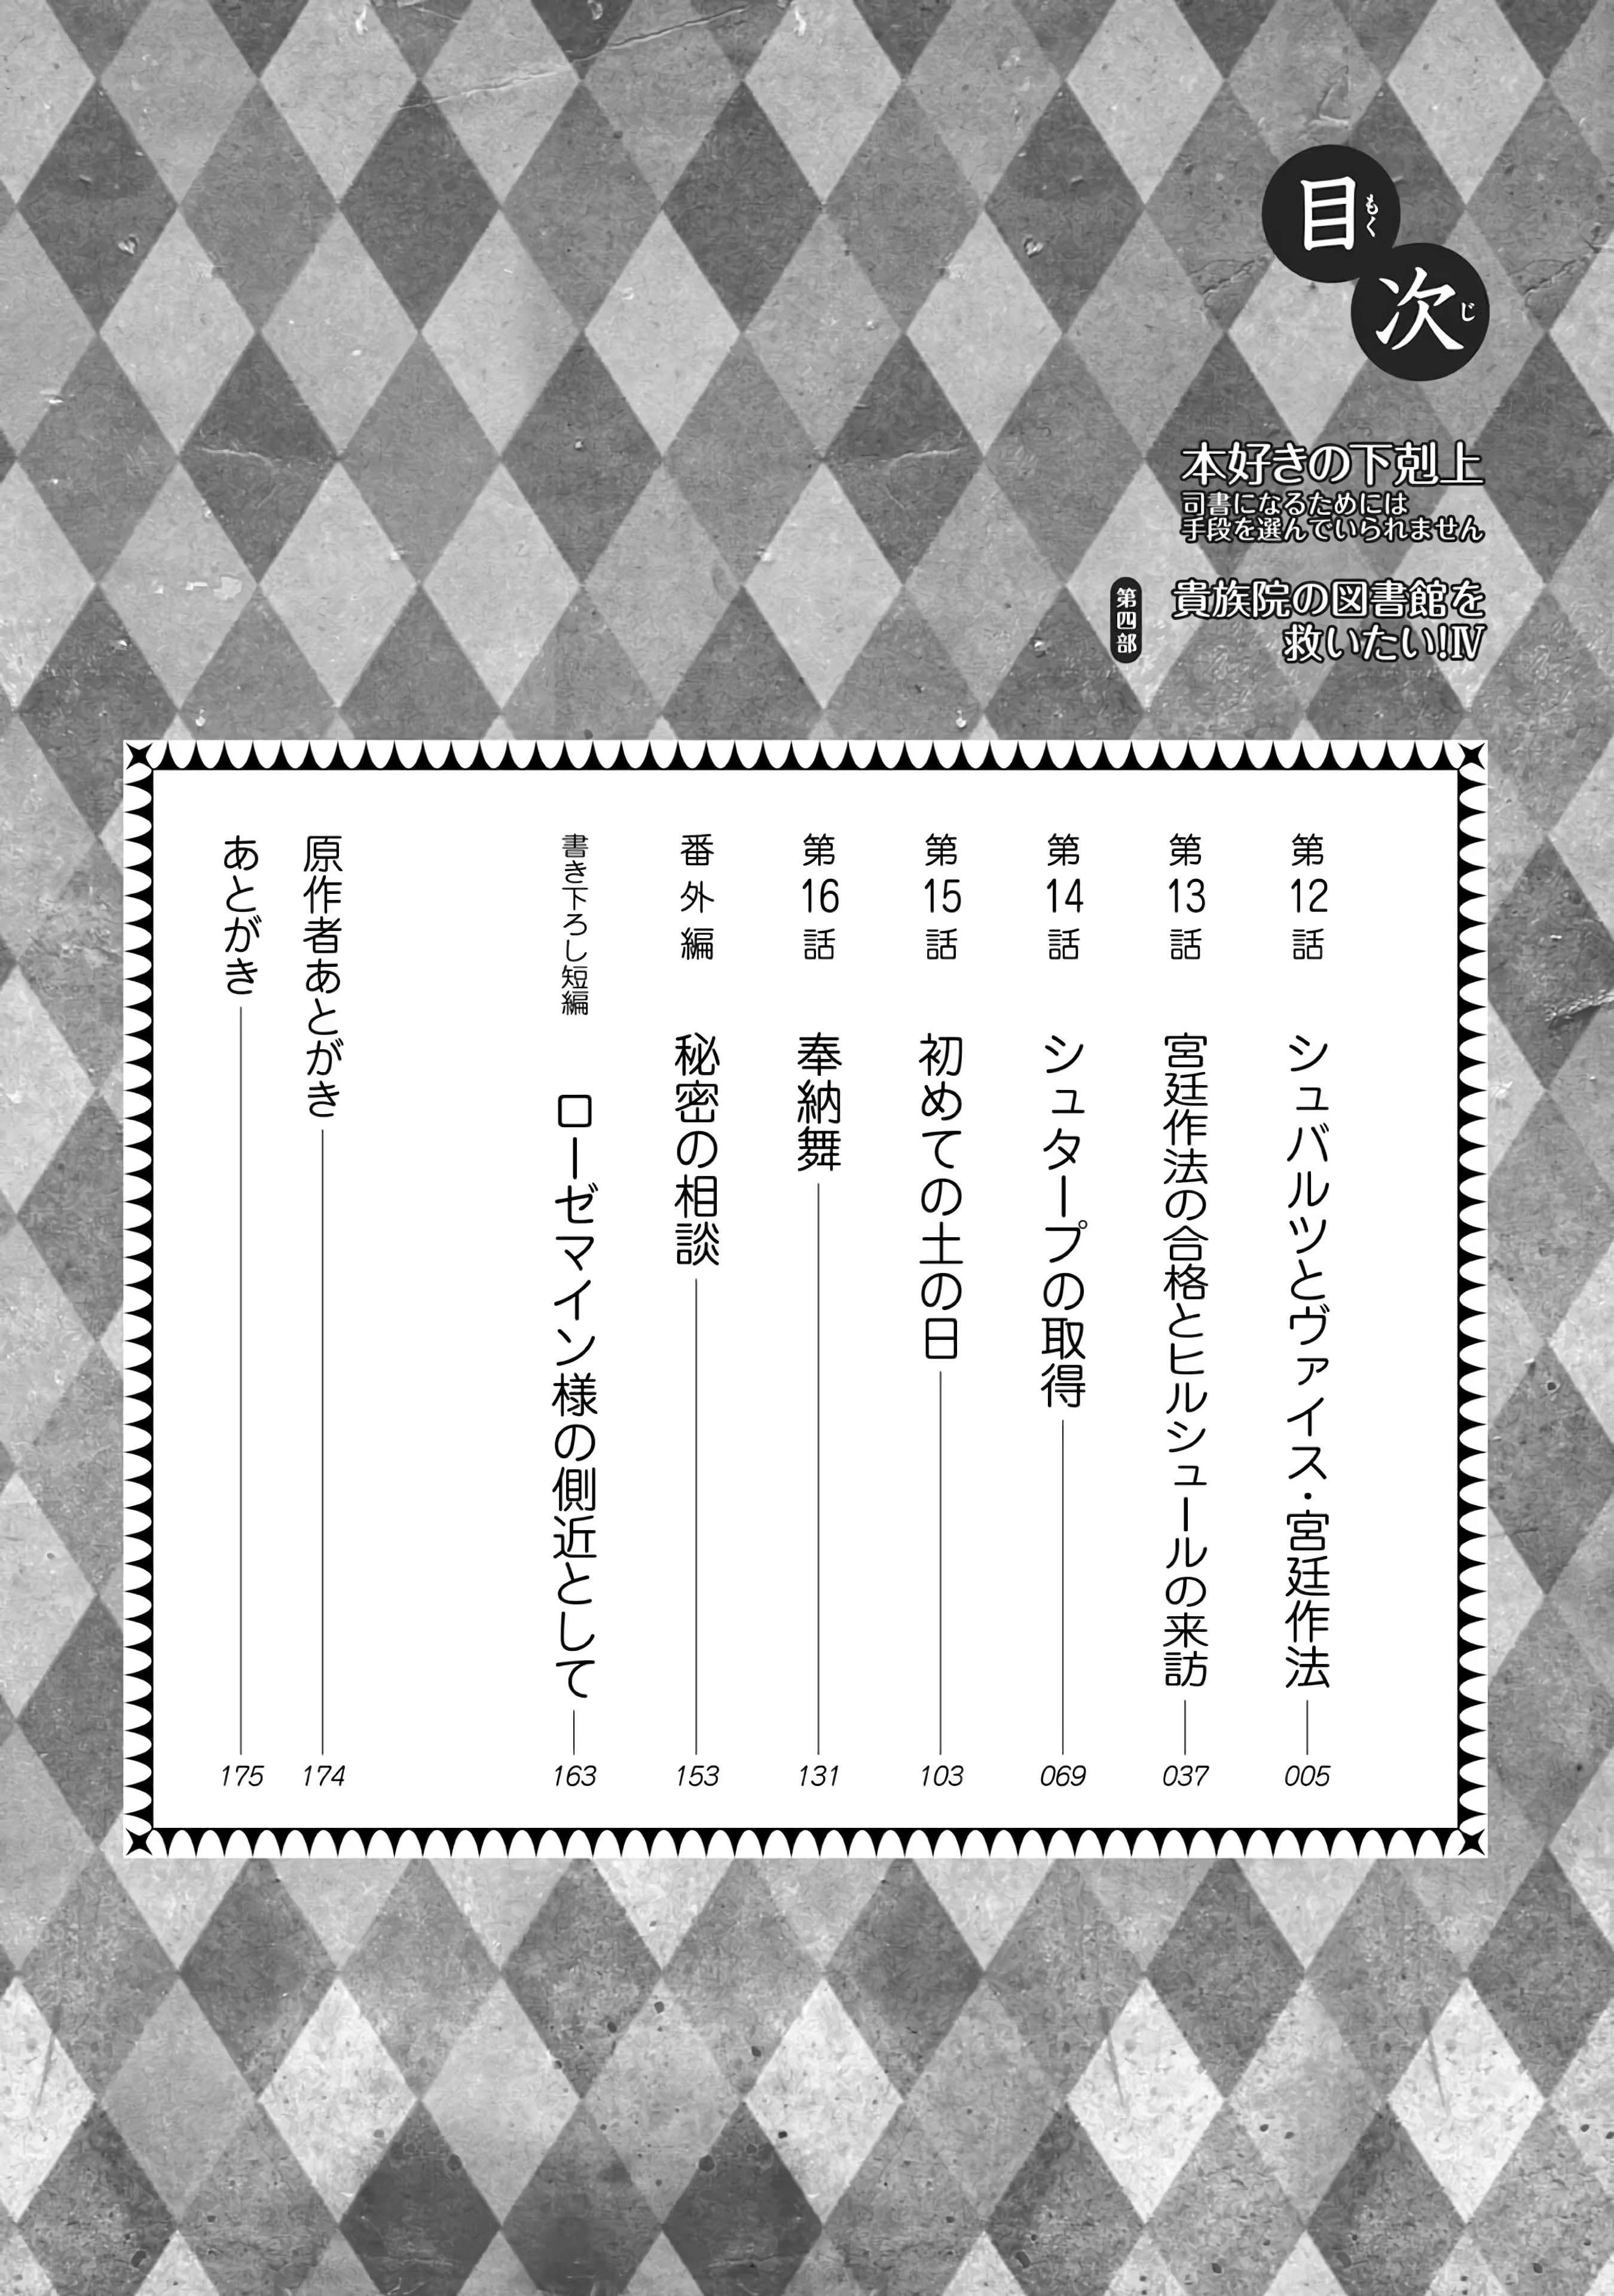 目次
もくじ
本好きの下剋上
司書になるためには
手段を選んでいられません
第四部
貴族院の図書館を
救いたい!Ⅳ
第12話 シュバルツとヴァイス・宮廷作法 005
第13話 宮廷作法の合格とヒルシュールの来訪 037
第14話 シュタープの取得 069
第15話 初めての土の日 103
第16話 奉納舞 131
番外編 秘密の相談 153
書き下ろし短編 ローゼマイン様の側近として 163
原作者あとがき 174
あとがき 175